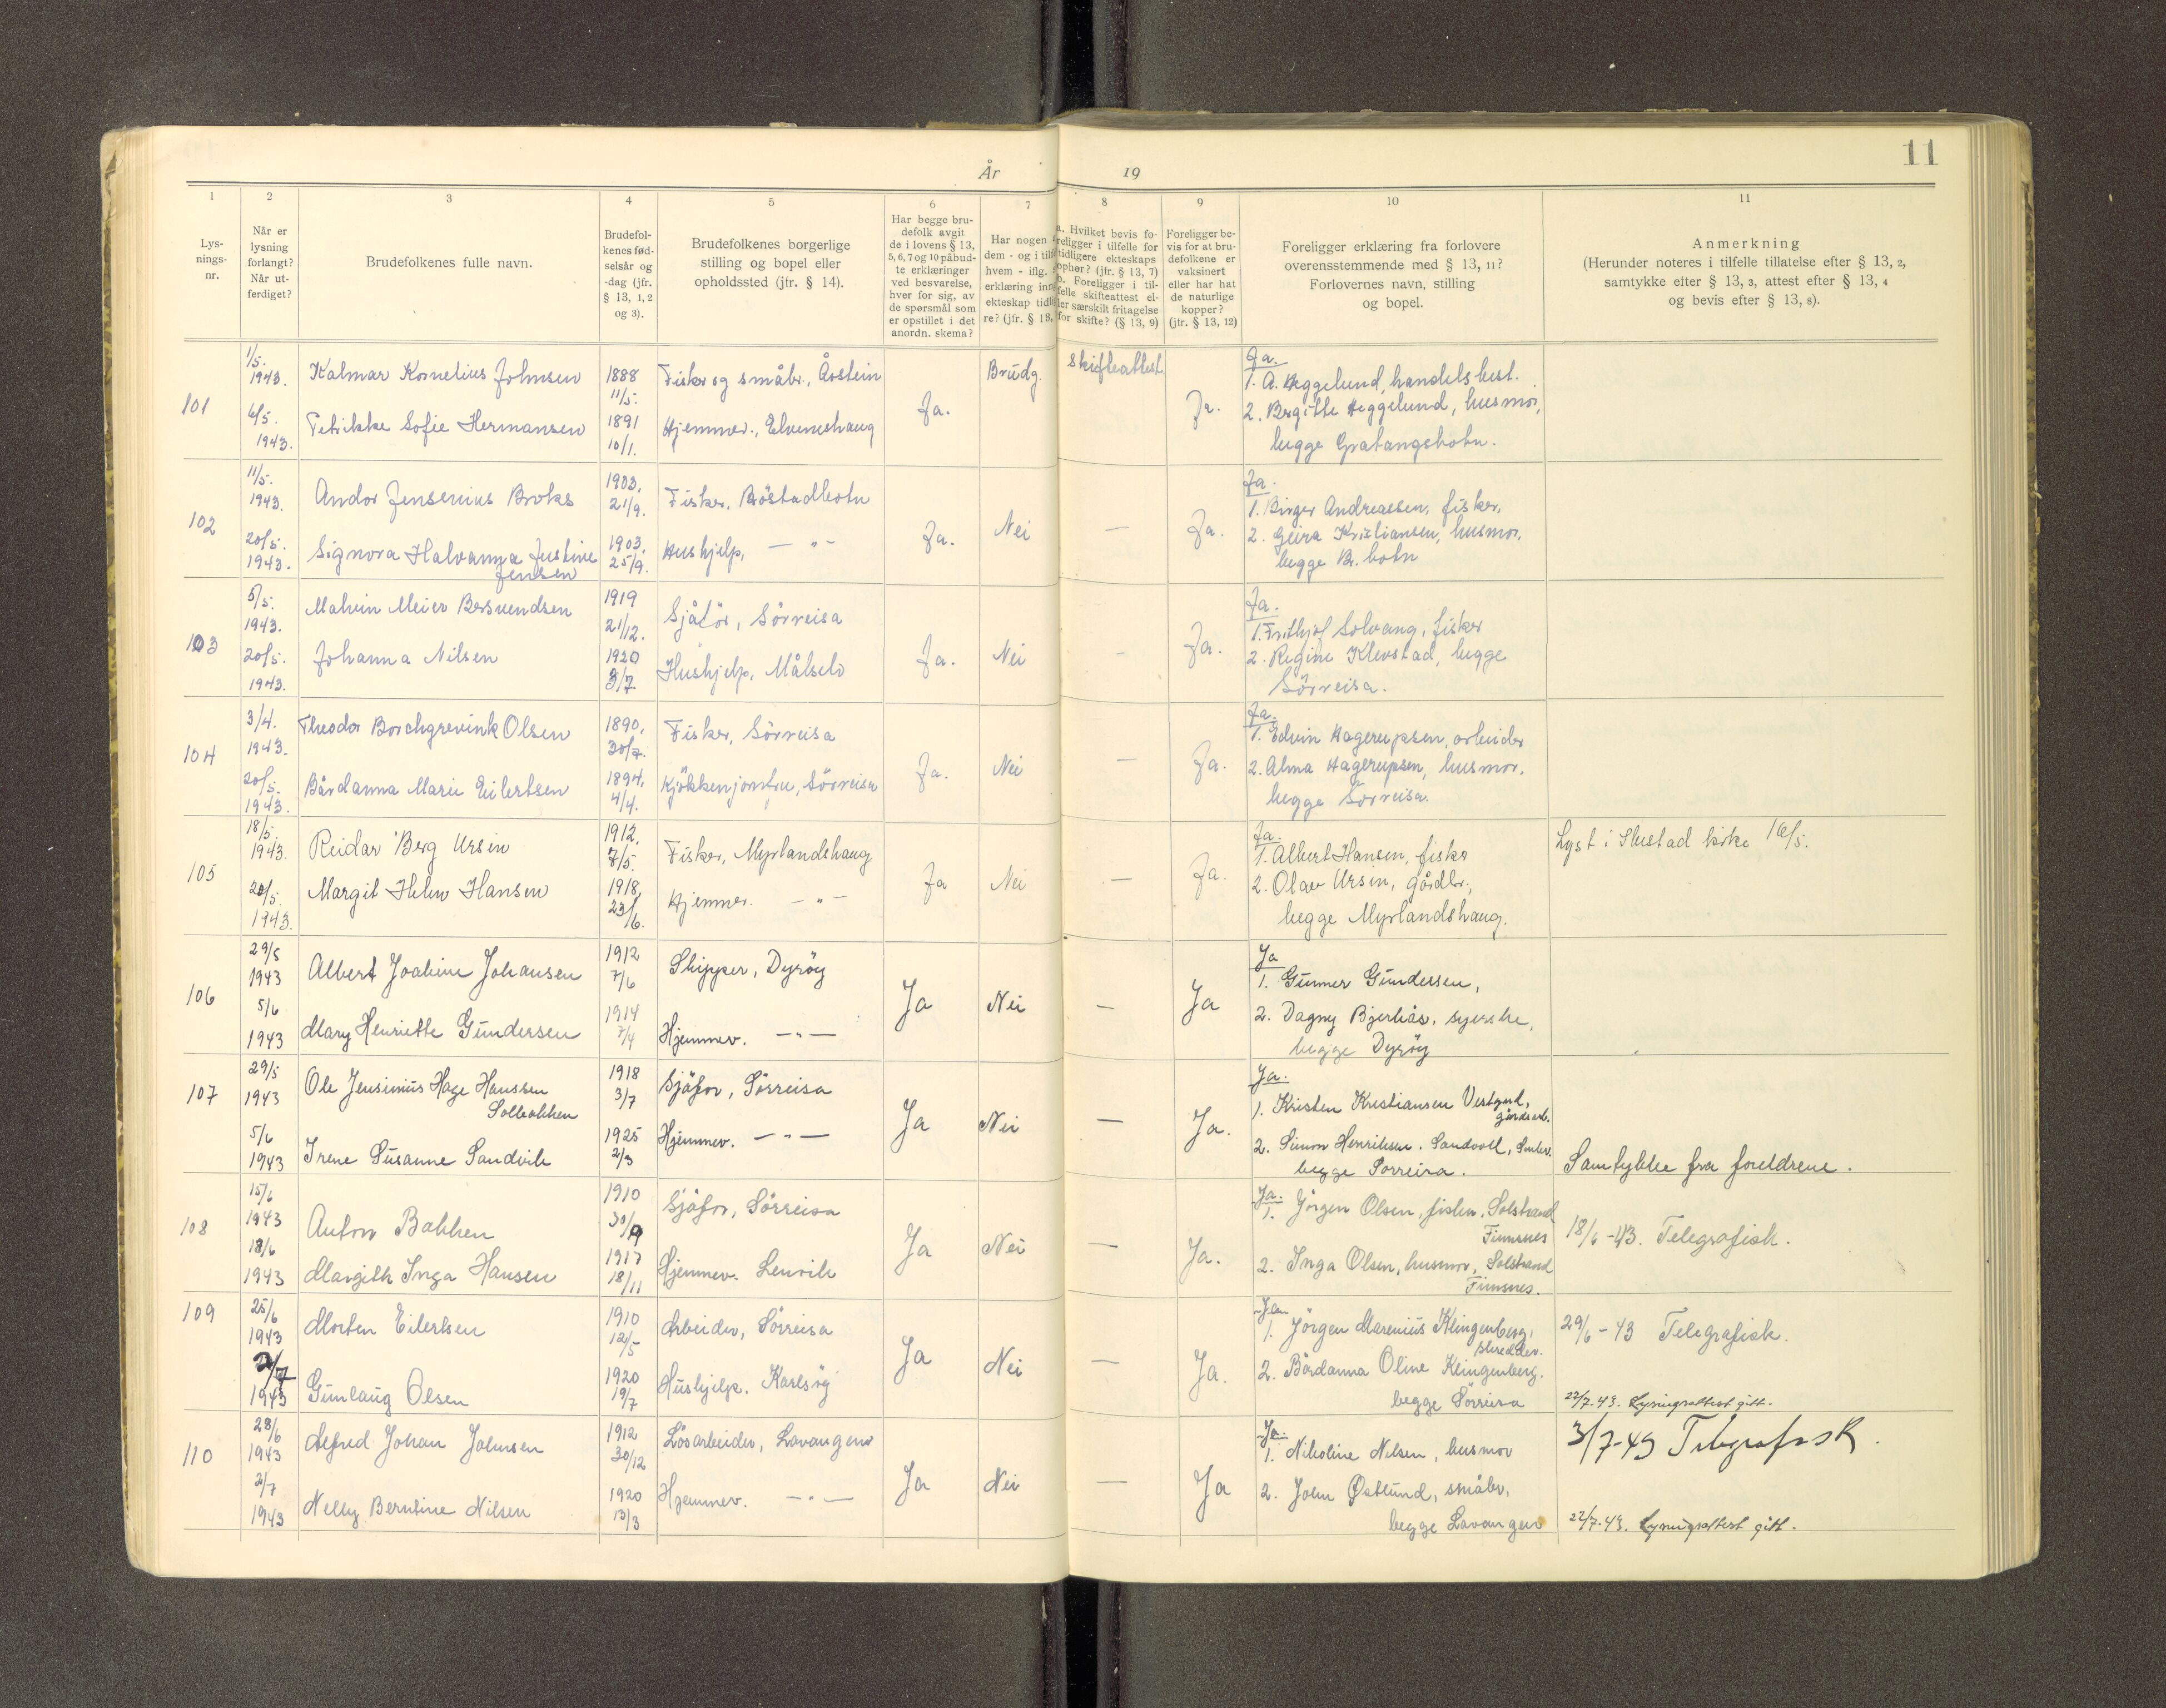 År 19
11
1 2 3 4 5 6 7 8 9 10 11
Lys-
nings-
nr.
Når er
lysning
forlangt?
Når ut-
ferdiget?
Brudefolkenes fulle navn.
Brudefol-
kenes fød-
selsår og
-dag (jfr.
§ 13, 1, 2
og 3).
Brudefolkenes borgerlige
stilling og bopel eller
opholdssted (jfr. § 14).
Har begge bru-
defolk avgit
de i lovens § 13,
5, 6, 7 og 10 påbud-
te erklæringer
ved besvarelse,
hver for sig, av
de spørsmål som
er opstillet i det
anordn. skema?
Har nogen
dem - og i tilf
hvem - iflg.
erklæring inn
ekteskap tidl
re? (jfr. § 13,
a. Hvilket bevis fo-
religger i tilfelle for
tidligere ekteskaps
ophør? (jfr. § 13, 7)
b. Foreligger i til-
felle skifteattest el-
ler særskilt fritagelse
for skifte? (§ 13, 9)
Foreligger be-
vis for at bru-
defolkene er
vaksinert
eller har hat
de naturlige
kopper?
(jfr. § 13, 12)
Foreligger erklæring fra forlovere
overensstemmende med § 13, 11?
Forlovernes navn, stilling
og bopel.
Anmerkning
(Herunder noteres i tilfelle tillatelse efter § 13, 2,
samtykke efter § 13, 3, attest efter § 13, 4
og bevis efter § 13, 8).
101
1/5.
1943.
6/5.
1943.
Kalmar Kornelius Johnsen
Petrikke Sofie Hermansen
1888
11/5.
1891
10/1.
Fisker og småbr., Årstein
Hjemmev., Elveneshaug
Ja.
Brudg.
Skifteattest
Ja.
Ja.
1. A. Heggelund, handelsbest.
2. Bergitte Heggelund, husmor,
begge Gratangsbotn.
102
11/5.
1943.
20/5.
1943.
Andor Jensenius Broks
Signora Halvanna Justine
Jensen
1903.
21/9.
1903.
25/9.
Fisker, Brøstadbotn
Hushjelp, — " —
Ja.
Nei
—
Ja.
Ja.
1. Birger Andreassen, fisker,
2. Geira Kristiansen, husmor,
begge Br. botn
103
5/5.
1943.
20/5.
1943.
Malvin Meier Bersvendsen
Johanna Nilsen
1919
21/12.
1920
3/7.
Sjåfør, Sørreisa
Hushjelp, Målselv
Ja.
Nei
—
Ja.
Ja.
1. Frithjof Solvang, fisker
2. Regine Klevstad, begge
Sørreisa.
104
3/4.
1943.
20/5.
1943.
Theodor Borchgrevink Olsen
Bårdanna Marie Eilertsen
1890,
30/7.
1894,
4/4.
Fisker, Sørreisa
Kjøkkenjomfru, Sørreisa
Ja.
Nei
—
Ja.
Ja.
1. Edvin Hagerupsen, arbeider
2. Alma Hagerupsen, husmor,
begge Sørreisa.
105
18/5.
1943.
20/5.
1943.
Reidar Berg Ursin
Margit Helene Hansen
1912,
7/5.
1918,
23/6.
Fisker, Myrlandshaug
Hjemmev. — " —
Ja
Nei
—
Ja.
Ja.
1. Albert Hansen, fisker
2. Olav Ursin, gårdbr.,
begge Myrlandshaug.
Lyst i kirke 16/5.
106
29/5
1943
5/6
1943
Albert Joakim Johansen
Mary Henriette Gundersen
1912
7/6
1914
7/4
Skipper, Dyrøy
Hjemmev. — " —
Ja
Nei
—
Ja
Ja
1. Gunner Gundersen,
2. Dagny Bjerkås, syerske,
begge Dyrøy
107
29/5
1943
5/6
1943
Ole Jensinius Hage Hanssen
Solbakken
Irene Susanne Sandvik
1918
3/7
1925
2/3
Sjåfør, Sørreisa
Hjemmev. — " —
Ja
Nei
—
Ja.
Ja.
1. Kristen Kristiansen Vestgård,
gårdsarb.
2. Simon Henriksen. Sandvoll, Småbr.
begge Sørreisa.
Samtykke fra foreldrene.
108
15/6
1943
18/6
1943
Anton Bakken
Margith Inga Hansen
1910
30/9
1917
18/11
Sjåfør, Sørreisa
Hjemmev. Lenvik
Ja
Nei
—
Ja.
Ja.
1. Jørgen Olsen, fisker, Solstrand
Finnsnes
2. Inga Olsen, husmor, Solstrand
Finnsnes.
18/6-43. Telegrafisk.
109
25/6
1943
2/7
1943
Morten Eilertsen
Gunlaug Olsen
1910
12/5
1920
19/7
Arbeider, Sørreisa
Hushjelp. Karlsøy
Ja
Nei
—
Ja.
Ja
1. Jørgen Marenius Klingenberg,
skredder.
2. Bårdanna Oline Klingenberg.
begge Sørreisa
29/6-43 Telegrafisk.
22/7.43. Lysningsattest gitt.
110
28/6
1943
2/7
1943
Alfred Johan Johnsen
Nelly Berntine Nilsen
1912
30/12
1920
13/3
Løsarbeider, Lavangen
Hjemmev. — " —
Ja
Nei
—
Ja
Ja.
1. Nikoline Nilsen, husmor
2. John Østlund, småbr.
begge Lavangen
3/7-43 Telegrafisk.
22/7.43. Lysningsattest gitt.